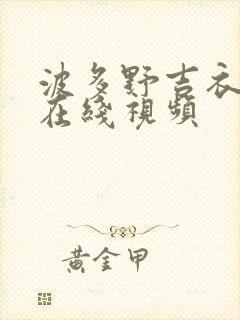 波多野吉衣
在綫視頻
黃金甲